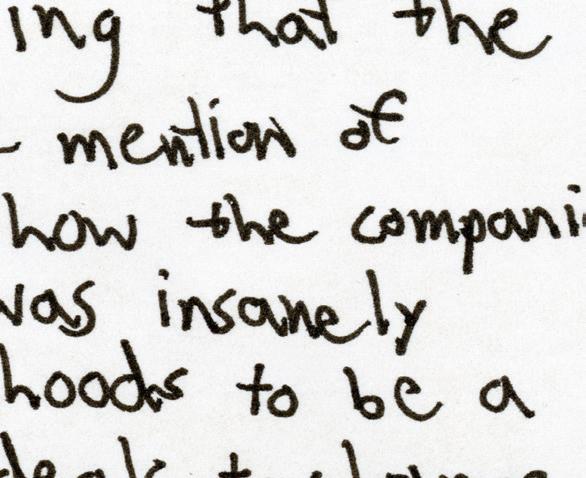 ing that the
- mention of
how the compani
was insanely
hoods to be a